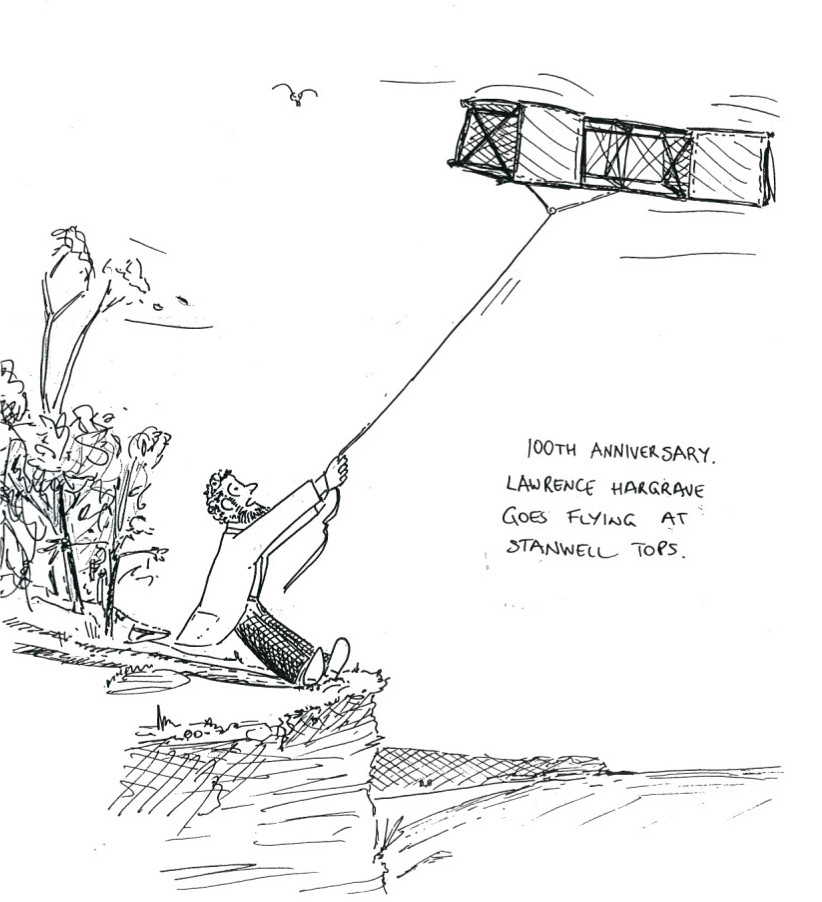 100TH ANNIVERSARY.
LAWRENCE HARGRAVE
GOES FLYING AT
STANWELL TOPS.